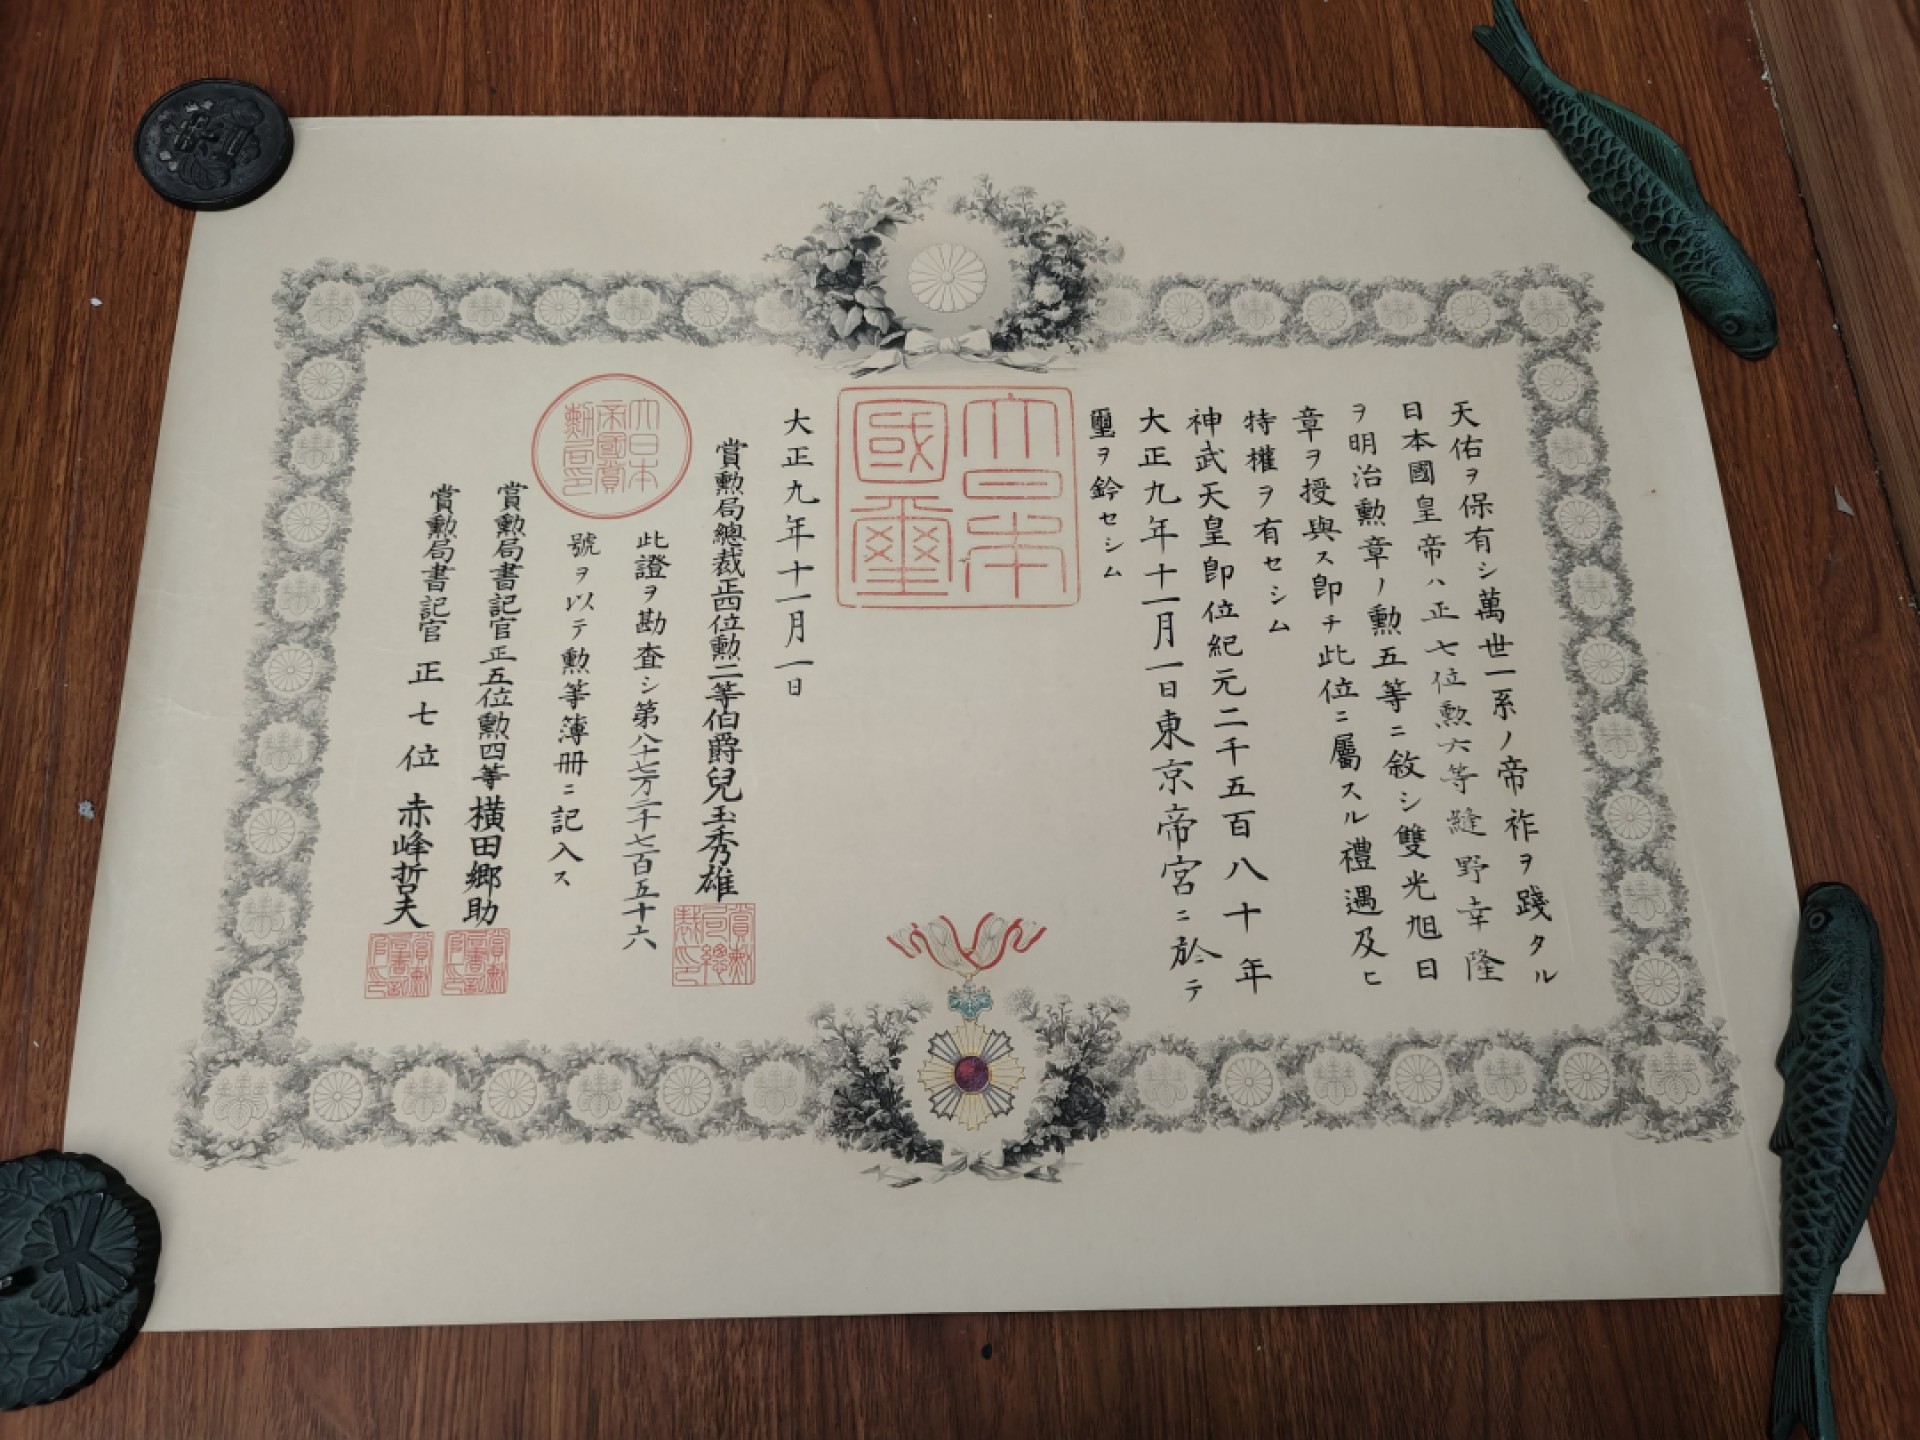 天佑ヲ保有シ萬世一系ノ帝祚ヲ踐タル
日本國皇帝ハ正七位勲六等縫野幸隆
ヲ明治勲章ノ勲五等ニ敘シ雙光旭日
章ヲ授與ス卽チ此位ニ屬スル禮遇及ヒ
特權ヲ有セシム
神武天皇卽位紀元二千五百八十年
大正九年十一月一日東京帝宮ニ於テ
璽ヲ鈐セシム
大日本
國璽
大正九年十一月一日
賞勲局總裁正四位勲二等伯爵兒玉秀雄
賞勲局總裁印
此證ヲ勘査シ第八十七万二千七百五十六
號ヲ以テ勲等簿册ニ記入ス
大日本
帝國賞
勲局印
賞勲局書記官正五位勲四等横田郷助
賞勲局書記官正七位赤峰哲夫